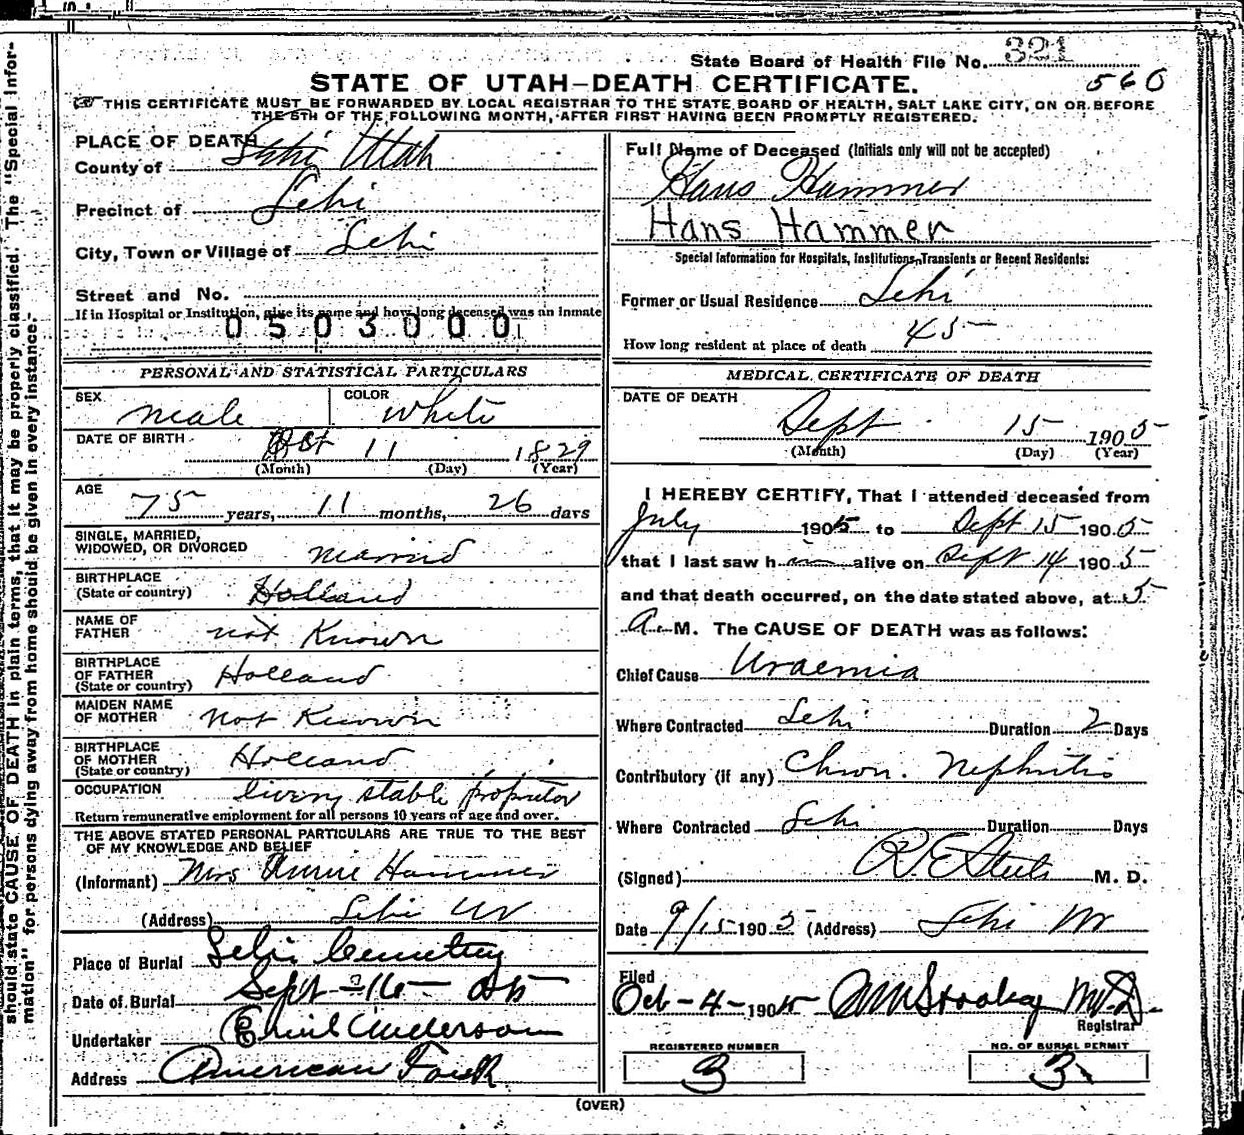 should state CAUSE OF DEATH in plain terms, that it may be properly classified. The "Special Infor-
mation" for persons dying away from home should be given in every instance.
State Board of Health File No. 321
560
STATE OF UTAH-DEATH CERTIFICATE.
THIS CERTIFICATE MUST BE FORWARDED BY LOCAL REGISTRAR TO THE STATE BOARD OF HEALTH, SALT LAKE CITY, ON OR BEFORE
THE 5TH OF THE FOLLOWING MONTH, AFTER FIRST HAVING BEEN PROMPTLY REGISTERED.
PLACE OF DEATH
County of Utah
Precinct of Lehi
City, Town or Village of Lehi
Street and No.
If in Hospital or Institution, give its name and how long deceased was an inmate
0503000
PERSONAL AND STATISTICAL PARTICULARS
SEX male COLOR white
DATE OF BIRTH 11 1829
(Month) (Day) (Year)
AGE
75 years, 11 months, 26 days
SINGLE, MARRIED,
WIDOWED, OR DIVORCED married
BIRTHPLACE
(State or country) Holland
NAME OF
FATHER not Known
BIRTHPLACE
OF FATHER
(State or country) Holland
MAIDEN NAME
OF MOTHER Not Known
BIRTHPLACE
OF MOTHER
(State or country) Holland
OCCUPATION livery stable proprietor
Return remunerative employment for all persons 10 years of age and over.
THE ABOVE STATED PERSONAL PARTICULARS ARE TRUE TO THE BEST
OF MY KNOWLEDGE AND BELIEF
(Informant) Mrs Annie Hammer
(Address) Lehi Ut
Place of Burial Lehi Cemetery
Date of Burial Sept 16 05
Undertaker Emil Anderson
Address American Fork
Full Name of Deceased (Initials only will not be accepted)
Hans Hammer
Hans Hammer
Special Information for Hospitals, Institutions, Transients or Recent Residents:
Former or Usual Residence Lehi
How long resident at place of death 45
MEDICAL CERTIFICATE OF DEATH
DATE OF DEATH
Sept 15 1905
(Month) (Day) (Year)
I HEREBY CERTIFY, That I attended deceased from
July 1905 to Sept 15 1905
that I last saw him alive on Sept 14 1905
and that death occurred, on the date stated above, at 5
A. M. The CAUSE OF DEATH was as follows:
Chief Cause Uraemia
Where Contracted Lehi Duration 2 Days
Contributory (if any) Chron. Nephritis
Where Contracted Lehi Duration Days
(Signed) R. E. Steele M. D.
Date 9/15 1905 (Address) Lehi Ut
Filed
Oct-4-1905 M.D.
Registrar
REGISTERED NUMBER
3
NO. OF BURIAL PERMIT
3
(OVER)